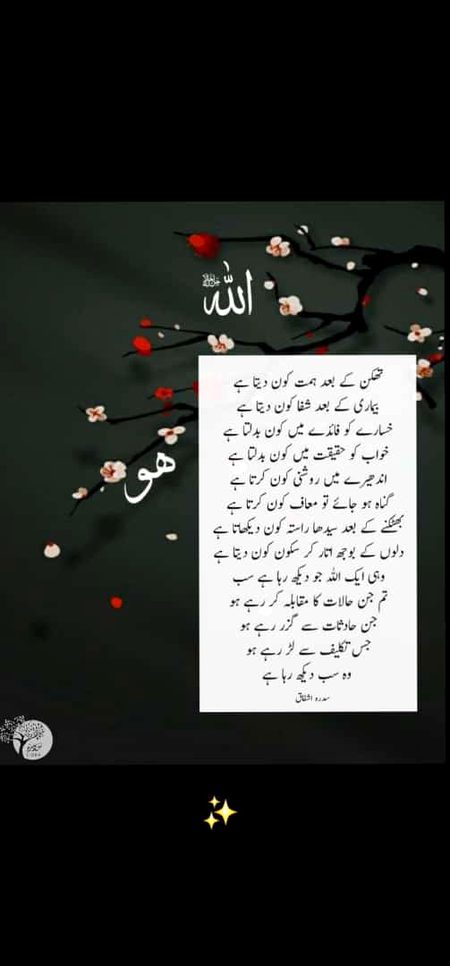 الله ﷻ
ھو
تھکن کے بعد ہمت کون دیتا ہے
بیماری کے بعد شفا کون دیتا ہے
خسارے کو فائدے میں کون بدلتا ہے
خواب کو حقیقت میں کون بدلتا ہے
اندھیرے میں روشنی کون کرتا ہے
گناہ ہو جائے تو معاف کون کرتا ہے
بھٹکنے کے بعد سیدھا راستہ کون دیکھاتا ہے
دلوں کے بوجھ اتار کر سکون کون دیتا ہے
وہی ایک اللہ جو دیکھ رہا ہے سب
تم جن حالات کا مقابلہ کر رہے ہو
جن حادثات سے گزر رہے ہو
جس تکلیف سے لڑ رہے ہو
وہ سب دیکھ رہا ہے
سدرہ اشفاق